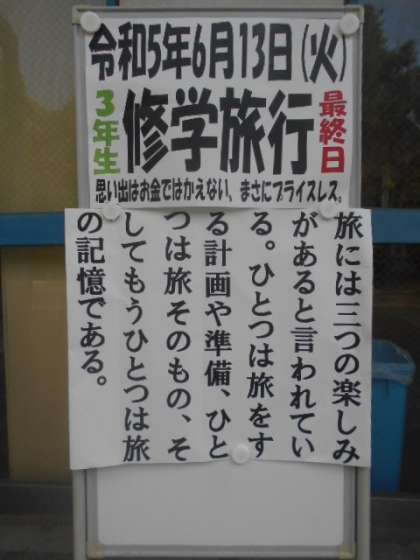 令和5年6月13日(火)
3年生
修学旅行
最終日
思い出はお金ではかえない、まさにプライスレス。
旅には三つの楽しみ
があると言われてい
る。ひとつは旅をす
る計画や準備、ひと
つは旅そのもの、そ
してもうひとつは旅
の記憶である。